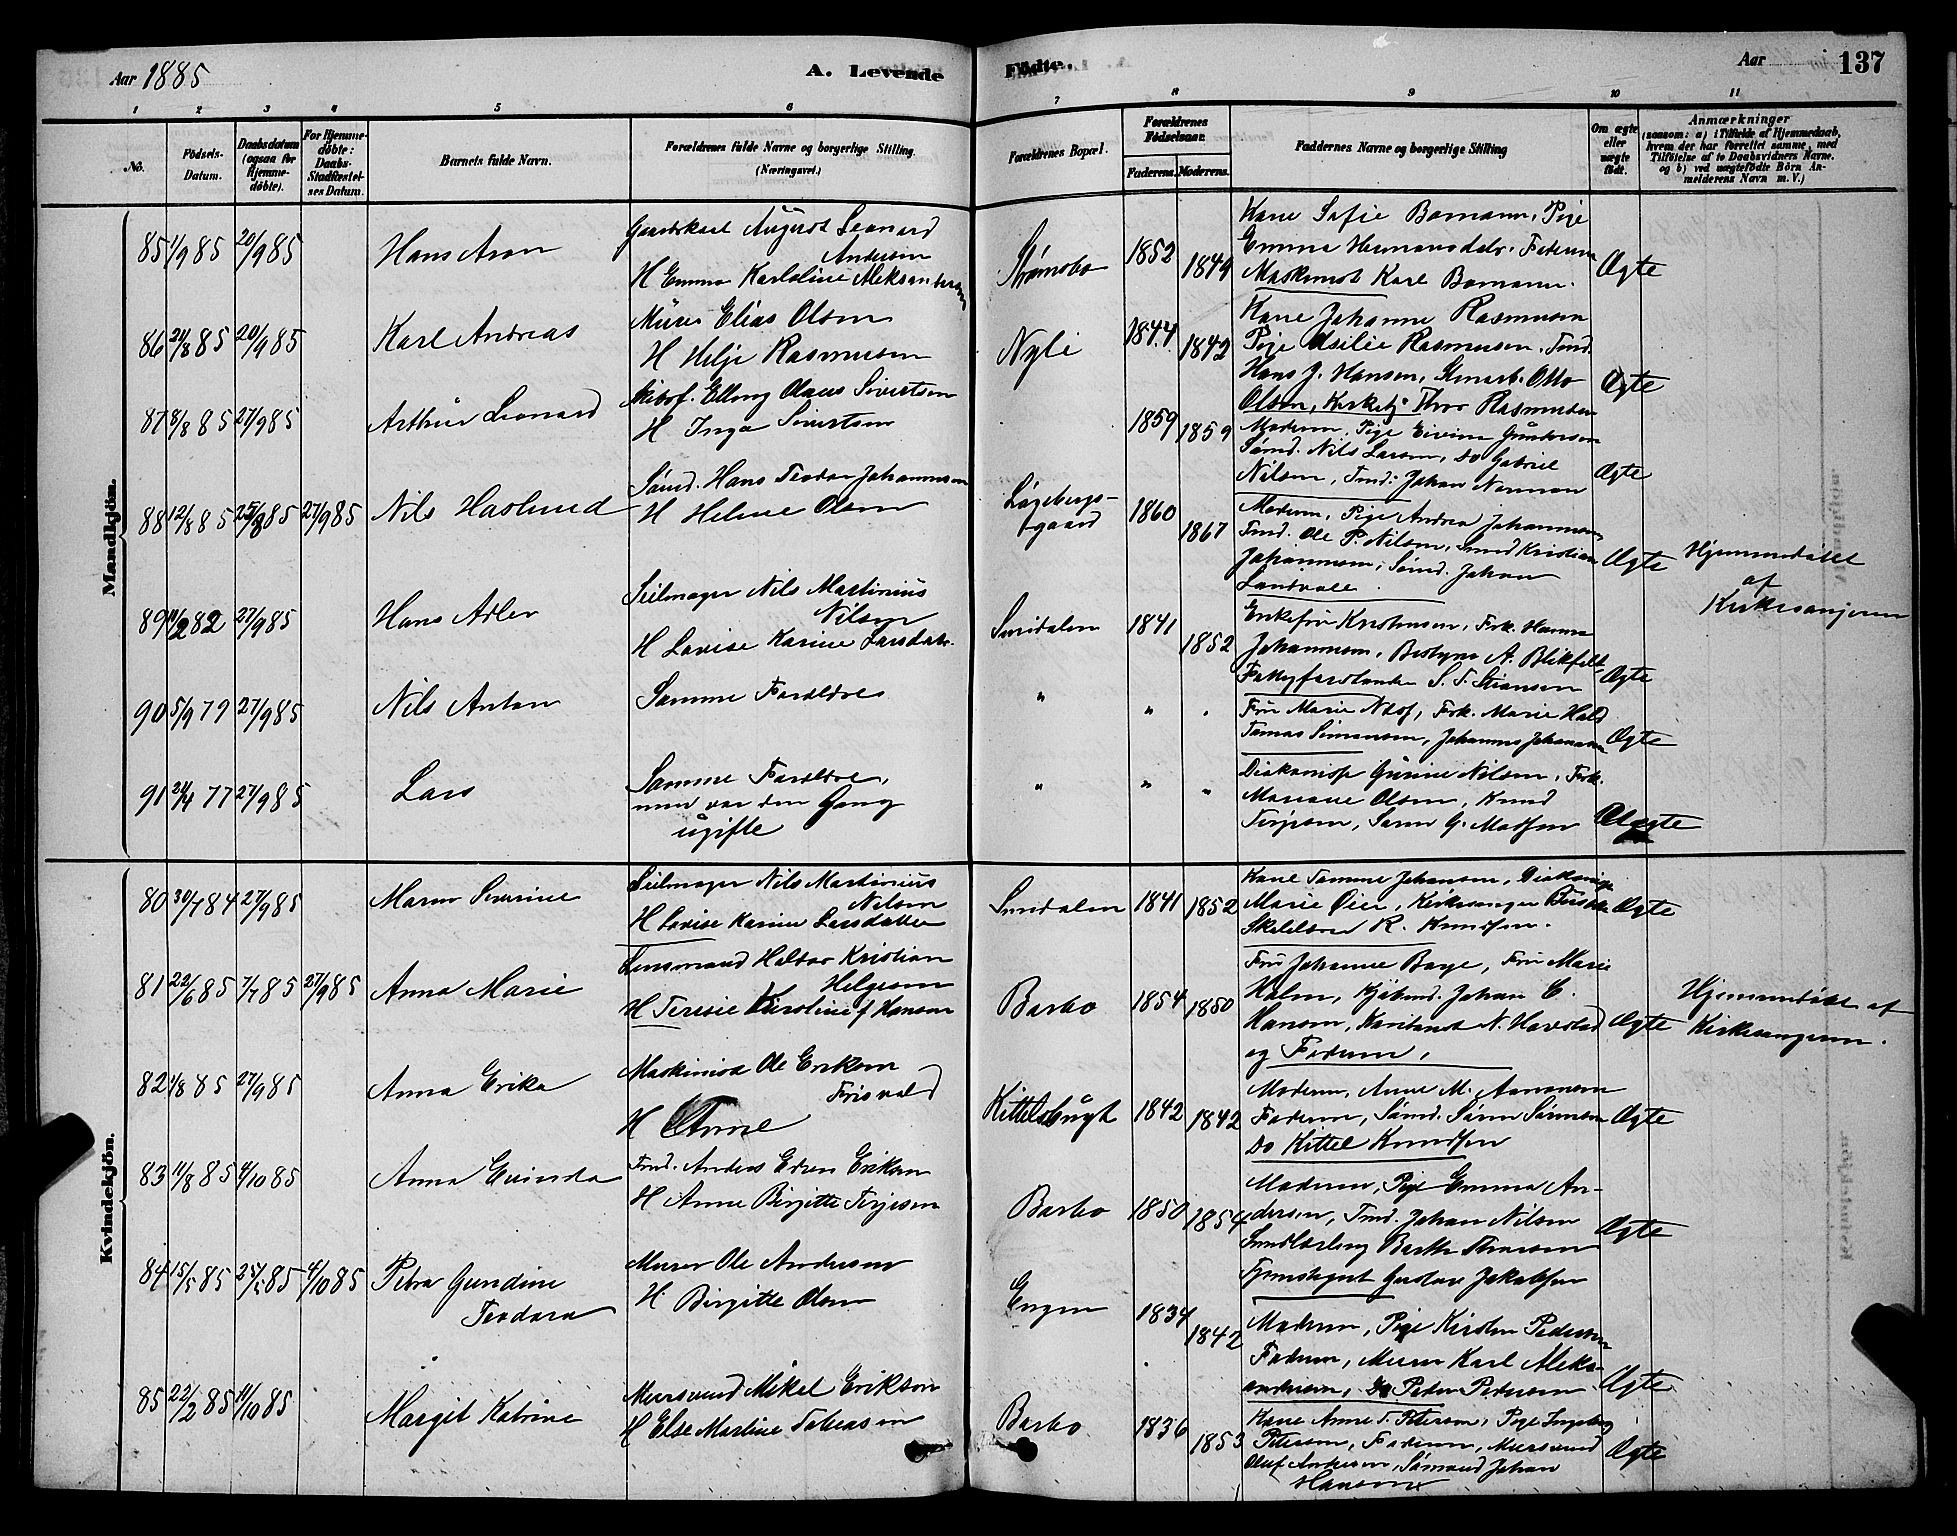 Aar 1885
A. Levende
Födte.
Aar
137
1 2 3 4 5 6 7 8 9 10 11
No.
Födsels-Datum.
Daabsdatum (ogsaa for Hjemmedöbte).
For Hjemmedöbte: Daabs-Stadfæstelses Datum.
Barnets fulde Navn.
Forældrenes fulde Navne og borgerlige Stilling. (Næringsvei.)
Forældrenes Bopæl.
Forældrenes Födselsaar.
Faderens.
Moderens.
Faddernes Navne og borgerlige Stilling
Om ægte eller uægte födt.
Anmærkninger
(saasom: a) i Tilfælde af Hjemmedaab, hvem der har forrettet samme, med Tilföielse af to Daabsvidners Navne. og b) ved uægtefödte Börn Anmelderens Navn m. V.)
Mandkjön.
85 1/9 85 20/9 85
Hans Aron
August Leonard
Andersen
H Emma Karloline Aleksandersen
1852 1849
Kone Sofie Bomann, Pige
Emma Hermansdatr. Faderen
Maskinist Karl Bomann.
Ægte
86 21/8 85 20/9 85
Karl Andreas
Murer Elias Olsen
H Helje Rasmusen
Nyli
1844 1842
Kone Johanne Rasmusen
Pige Rasmusen, Tmd.
Hans J. Hansen, Otto
Olsen, Thor Rasmusen
Ægte
87 8/8 85 27/9 85
Arthur Leonard
Ellong Olaus Sivertsen
H Inga Sivertsen
1859 1859
Moderen, Pige Gundersen
Sømd. Nils Larsen, Do Gabriel
Nilsen, Tmd. Johan
Ægte
88 12/8 85 25/8 85 27/9 85
Nils Haslund
Sømd. Hans Teodor Johannesen
H Helene Olsen
gaard
1860 1867
Moderen, Pige Andrea Johannesen
Tmd. Ole P. Nilsen, Kristian
Johannesen, Sømd. Johan
Ægte
Hjemmedøbt
af
Kirkesangeren
89 282 27/9 85
Hans Adler
Seilmager Nils Martinius
Nilsen
H Lovise Karine Larsdatr.
1841 1852
Enkefru Kristensen, Frk. Hanna
Johannesen, Bestyrer A. Blikfelt
Fattigforstander S. T.
Ægte
90 5/9 79 27/9 85
Nils Anton
Samme Forældre
" " "
Fru Marie Frk. Marie Hald
Tomas Simonsen, Johannes
Ægte
91 77 27/9 85
Lars
Samme Forældre,
men var den Gang
ugifte
" " "
Diakonisse Gurine Nilsen, Frk.
Mariane Olsen, Knud
Terjesen, G. Madsen
Uægte
Kvindekjön.
80 30/7 84 27/9 85
Maren Severine
Seilmager Nils Martinius
Nilsen
H Lovise Karine Larsdatter
1841 1852
Kone Johansen,
Marie Kirkesanger
R. Knudsen.
Ægte
81 22/6 85 7/7 85 27/9 85
Anna Marie
Lensmand Haldor Kristian
Helgesen
H Teresie Kirstine f Hansen
Barbo
1854 1850
Fru Johanne Fru Marie
Holm, Kjøbmd. Johan C.
Hansen, N. Havstad
og Faderen,
Ægte
Hjemmedøbt af
Kirkesangeren.
82 1/8 85 27/9 85
Anna Erika
Maskinist Ole Eriksen
Frisvold
H Anne
Kittelsbugt
1842 1842
Moderen, Anne M. Aanonsen
Faderen, Sømd. Søren Sørensen
Do Kittel Knudsen
Ægte
83 11/8 85 4/10 85
Anna
Tmd. Anders Eriksen
H Anne Birgitte Terjesen
Barbo
1850 1854
Moderen, Pige Emma An-
dersen, Tmd. Johan Nilsen
Ægte
84 15/5 85 4/10 85
Petra Gundine
Teodora
Murer Ole Andersen
H. Birgitte Olsen
Engen
1834 1842
Gustav Jakobsen
Moderen, Pige Kirsten Pedersen
Faderen, Murer Karl Aleks-
andersen, Do Peder Pedersen
Ægte
85 22/2 85 11/10 85
Margit Katrine
Mursvend Mikel Erikson
H Else Martine Tobiasen
Barbo
1836 1853
Kone Anne T. Petersen, Pige Ingeborg
Petersen, Faderen, Mursvend
Oluf Andersen, Sømand Johan
Hansen
Ægte